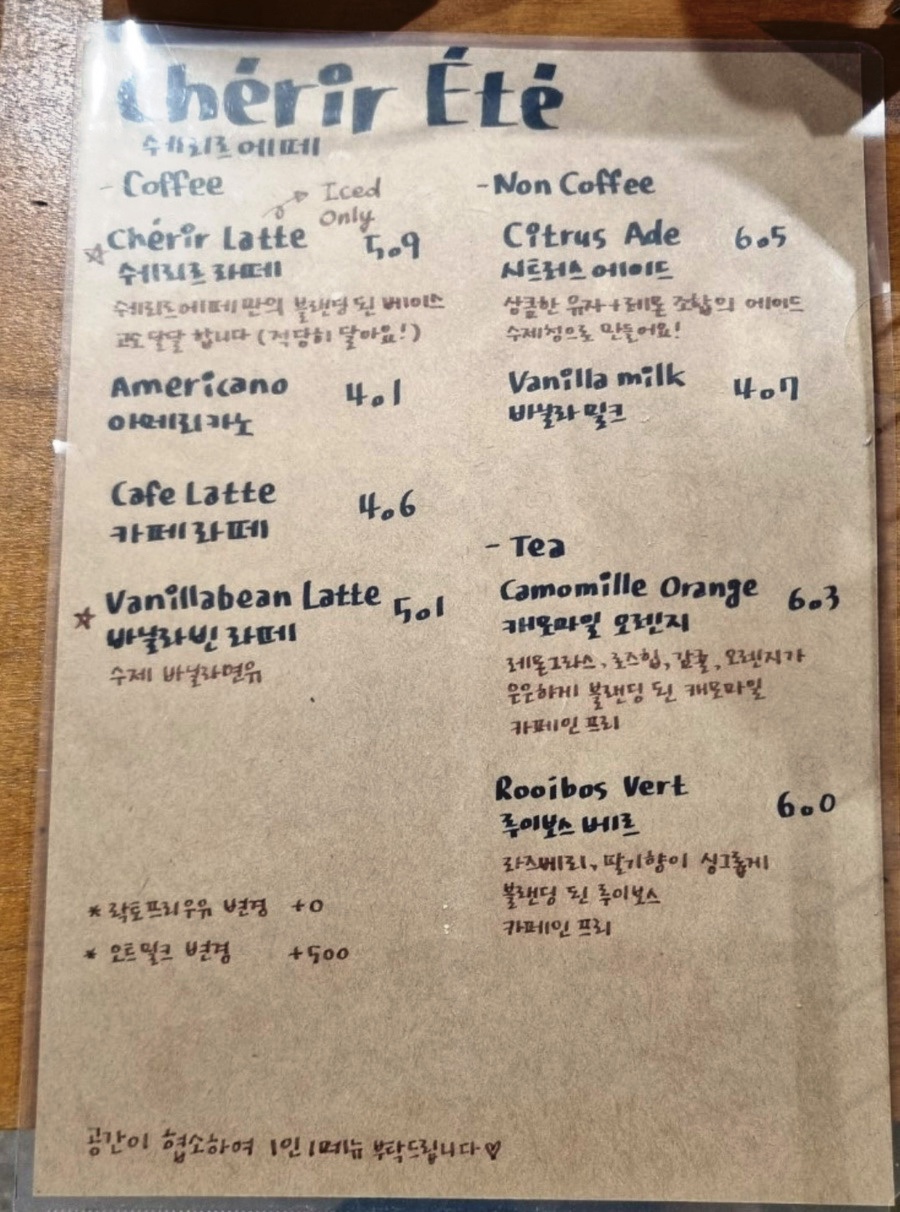 Chérir Été
쉐리르에떼
- Coffee
Iced
Only
☆Chérir Latte 5.9
쉐리르라떼
쉐리르에떼만의 블랜딩 된 베이스
고소달달 합니다 (적당히 달아요!)
Americano 4.1
아메리카노
Cafe Latte 4.6
카페라떼
☆Vanillabean Latte 5.1
바닐라빈 라떼
수제 바닐라연유
* 락토프리우유 변경 +0
* 오트밀크 변경 +500
- Non Coffee
Citrus Ade 6.5
시트러스에이드
상큼한 유자+레몬 조합의 에이드
수제청으로 만들어요!
Vanilla milk 4.7
바닐라밀크
- Tea
Camomille Orange 6.3
캐모마일 오렌지
레몬그라스, 로즈힙, 감귤, 오렌지가
은은하게 블랜딩 된 캐모마일
카페인 프리
Rooibos Vert 6.0
루이보스 베르
라즈베리, 딸기향이 싱그롭게
블랜딩 된 루이보스
카페인 프리
공간이 협소하여 1인1메뉴 부탁드립니다♡